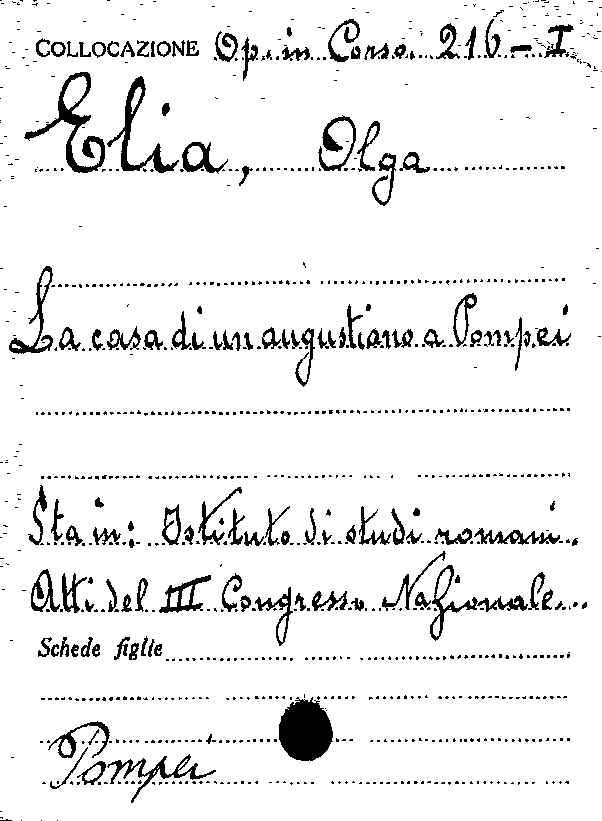 COLLOCAZIONE Op. in Corso. 216 - I
Elia, Olga
La casa di un augustiano a Pompei
Sta in: Istituto di studi romani.
Atti del III Congresso Nazionale...
Schede figlie
Pompei